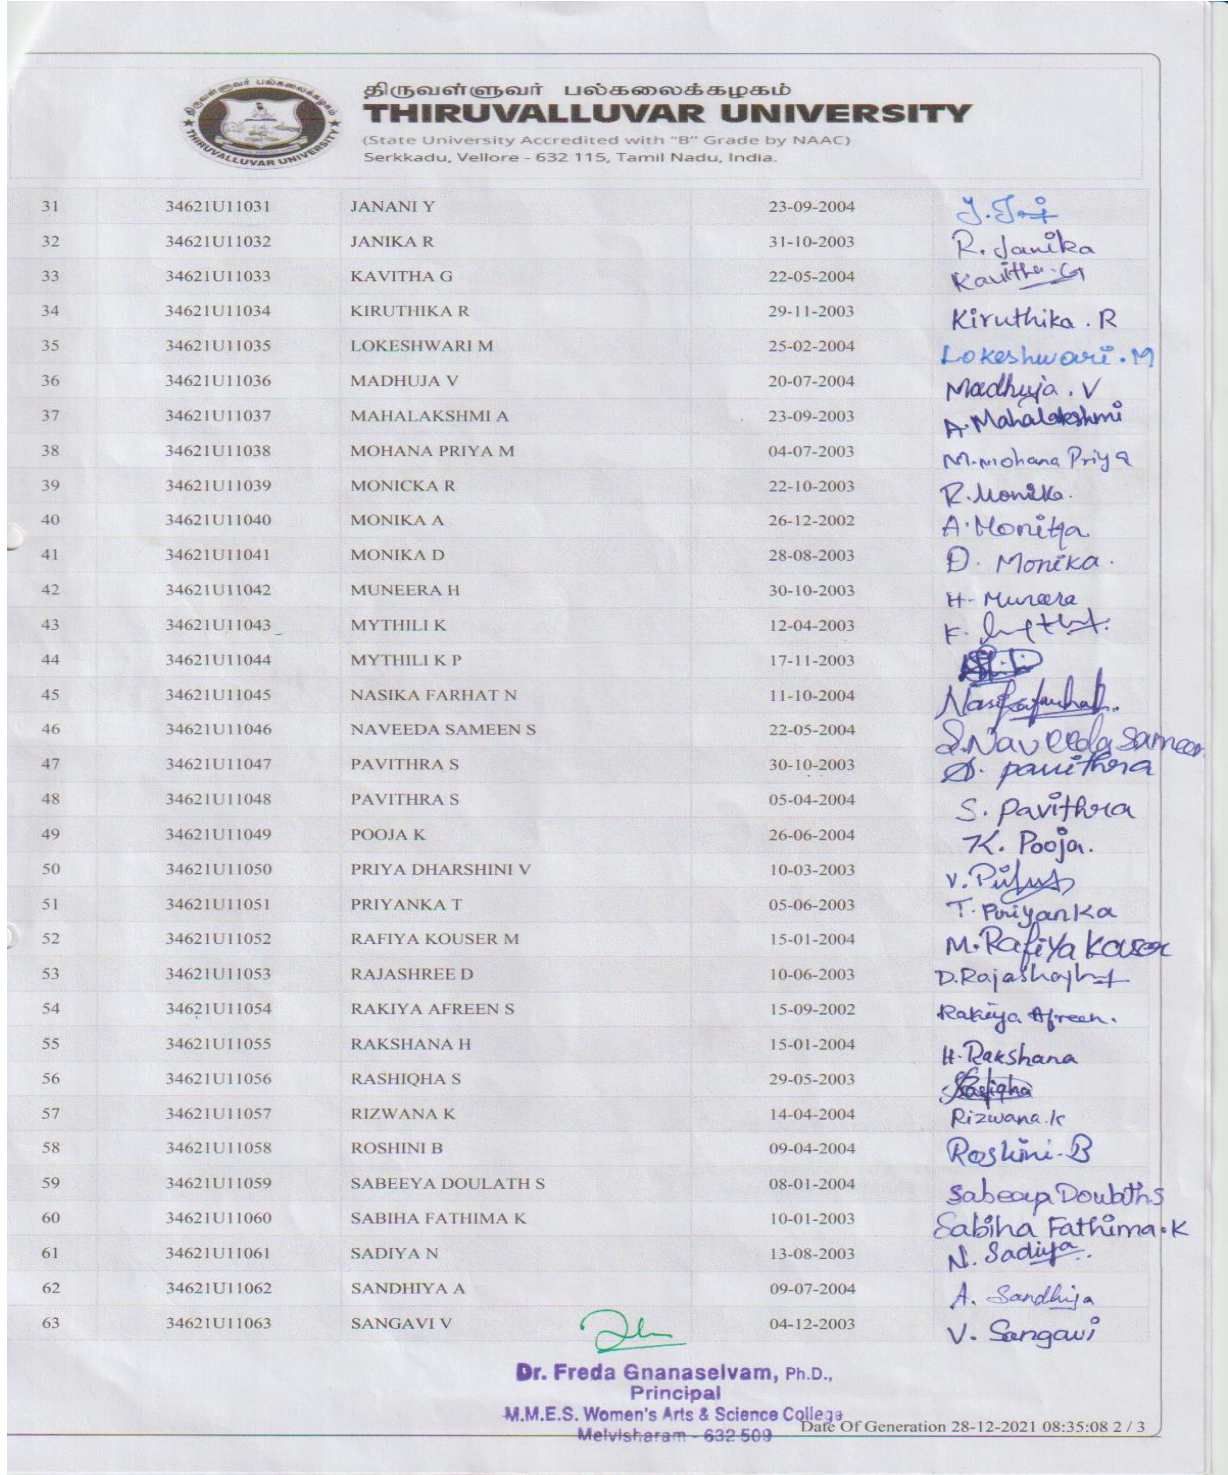 திருவள்ளுவர் பல்கலைக்கழகம்
THIRUVALLUVAR UNIVERSITY
(State University Accredited with "B" Grade by NAAC)
Serkkadu, Vellore - 632 115, Tamil Nadu, India.
திருவள்ளுவர் பல்கலைக்கழகம்
THIRUVALLUVAR UNIVERSITY
31 34621U11031 JANANI Y 23-09-2004
32 34621U11032 JANIKA R 31-10-2003 R. Janika
33 34621U11033 KAVITHA G 22-05-2004 Kavitha.G
34 34621U11034 KIRUTHIKA R 29-11-2003 Kiruthika . R
35 34621U11035 LOKESHWARI M 25-02-2004 Lokeshwari . M
36 34621U11036 MADHUJA V 20-07-2004 Madhuja . V
37 34621U11037 MAHALAKSHMI A 23-09-2003 A.Mahalakshmi
38 34621U11038 MOHANA PRIYA M 04-07-2003 M.mohana Priya
39 34621U11039 MONICKA R 22-10-2003 R.Monika.
40 34621U11040 MONIKA A 26-12-2002 A.Monika
41 34621U11041 MONIKA D 28-08-2003 D. Monika .
42 34621U11042 MUNEERA H 30-10-2003 H- Muneera
43 34621U11043 MYTHILI K 12-04-2003 K.
44 34621U11044 MYTHILI K P 17-11-2003
45 34621U11045 NASIKA FARHAT N 11-10-2004 Nasikafarhat.
46 34621U11046 NAVEEDA SAMEEN S 22-05-2004 S.Naveeda Sameen
47 34621U11047 PAVITHRA S 30-10-2003 S. pavithra
48 34621U11048 PAVITHRA S 05-04-2004 S. Pavithra
49 34621U11049 POOJA K 26-06-2004 K. Pooja.
50 34621U11050 PRIYA DHARSHINI V 10-03-2003 V.
51 34621U11051 PRIYANKA T 05-06-2003 T. Priyanka
52 34621U11052 RAFIYA KOUSER M 15-01-2004 M.Rafiya Kouser
53 34621U11053 RAJASHREE D 10-06-2003
54 34621U11054 RAKIYA AFREEN S 15-09-2002 Rakiya Afreen.
55 34621U11055 RAKSHANA H 15-01-2004 H.Rakshana
56 34621U11056 RASHIQHA S 29-05-2003
57 34621U11057 RIZWANA K 14-04-2004 Rizwana.K
58 34621U11058 ROSHINI B 09-04-2004 Roshini.B
59 34621U11059 SABEEYA DOULATH S 08-01-2004 Sabeeya Doulath.S
60 34621U11060 SABIHA FATHIMA K 10-01-2003 Sabiha Fathima.K
61 34621U11061 SADIYA N 13-08-2003 N. Sadiya.
62 34621U11062 SANDHIYA A 09-07-2004 A. Sandhiya
63 34621U11063 SANGAVI V 04-12-2003 V. Sangavi
Dr. Freda Gnanaselvam, Ph.D.,
Principal
M.M.E.S. Women's Arts & Science College
Melvisharam - 632 509
Date Of Generation 28-12-2021 08:35:08 2 / 3